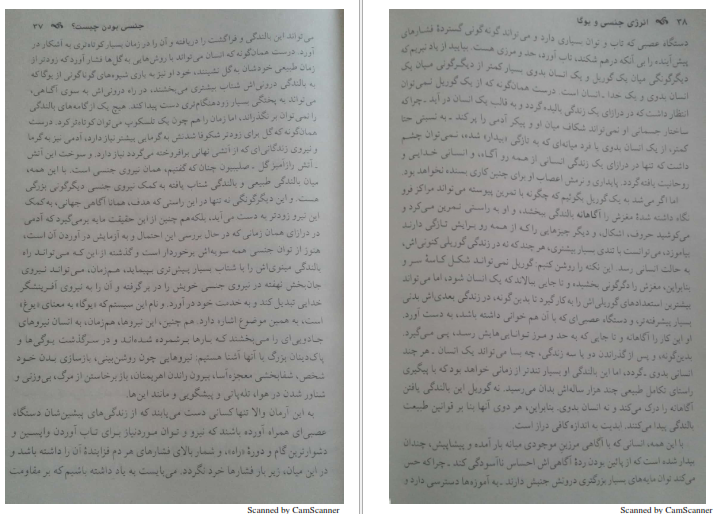 جنسی بودن چیست؟ ۳۷
می‌تواند این بالندگی و فراگشت را دریافته و آن را در زمان بسیار کوتاه‌تری به آشکار در
آورد. درست همان‌گونه که انسان می‌تواند با روش‌هایی به گل‌ها فشار آورد که زودتر از
زمان طبیعی خودشان به گل نشینند، خود او نیز به یاری شیوه‌های گوناگونی از یوگا که
به بالندگی درونی‌اش شتاب بیشتری می‌بخشند، در راه درونی‌اش به سوی آگاهی،
می‌تواند به پختگی بسیار زودهنگام‌تری دست پیدا کند. هیچ یک از گامه‌های بالندگی
را نمی‌توان بر نگذراند، اما زمان را هم چون یک تلسکوپ، می‌توان کوتاه‌تر کرد. درست
همان‌گونه که گل برای زودتر شکوفا شدنش به گرمایی بیشتر نیاز دارد، آدمی نیز به گرما
و نیروی زندگانی‌ای که از آتشی نهانی برافروخته می‌گردد نیاز دارد. و سوخت این آتش
ـ آتش رازآمیز گل ـ صلیبیون چنان که گفتیم، همان نیروی جنسی است. با این همه،
میان بالندگی طبیعی و بالندگی شتاب یافته به کمک نیروی جنسی دیگرگونی بزرگی
هست. و این دیگرگونگی نه تنها در این راستی که هدف، همانا آگاهی جهانی، به کمک
این نیرو زودتر به دست می‌آید، بلکه هم چنین از این حقیقت مایه بر می‌گیرد که آدمی
در درازای همان زمانی که در حال بررسی این احتمال و به آزمایش در آوردن آن است،
هنوز از توان جنسی همه سویه‌اش برخوردار است و گذشته از این که می‌تواند راه
بالندگی مینوی‌اش را با شتاب بسیار بیش‌تری بپیماید، هم‌زمان، می‌تواند نیروی
جان‌بخش نهفته در نیروی جنسی خویش را در بر گرفته و آن را به نیروی آفرینشگر
خدایی تبدیل کند و به خدمت خود در آورد. و نام این سیستم که «یوگا» به معنای «یوغ»
است، به همین موضوع اشاره دارد. هم چنین، این نیروها، هم‌زمان، به انسان نیروهای
جادویی‌ای را می‌بخشند که بارها برشمرده شده‌اند و در سرگذشت یوگی‌ها و
پاک‌دینان بزرگ با آنها آشنا هستیم: نیروهایی چون روشن‌بینی، بازسازی بدن خود
شخص، شفابخشی معجزه‌آسا، بیرون راندن اهریمنان، باز برخاستن از مرگ، بی‌وزنی و
شناور شدن در هوا، تله‌پاتی و پیشگویی و مانند این‌ها.
به این آرمان والا تنها کسانی دست می‌یابند که از زندگی‌های پیشین‌شان دستگاه
عصبی‌ای همراه آورده باشند که نیرو و توان موردنیاز برای تاب آوردن واپسین و
دشوارترین گام و دورهٔ «راه»، و شمار بالای فشارهای هر دم فزایندهٔ آن را داشته باشد و
در این میان، زیر بار فشارها خرد نگردد. می‌بایست به یاد داشته باشیم که بر مقاومت
۳۸ انرژی جنسی و یوگا
دستگاه عصبی که تاب و توان بسیاری دارد و می‌تواند گونه‌گونی گستردهٔ فشارهای
پیش‌آینده را بی آنکه درهم شکند، تاب آورد، حد و مرزی هست. بیایید از یاد نبریم که
دیگرگونگی میان یک گوریل و یک انسان بدوی بسیار کمتر از دیگرگونی میان یک
انسان بدوی و یک خدا ـ انسان است. درست همان‌گونه که از یک گوریل نمی‌توان
انتظار داشت که در درازای یک زندگی بالیده گردد و به قالب یک انسان در آید ـ چرا که
ساختار جسمانی او نمی‌تواند شکاف میان او و پیکر آدمی را پر کند ـ به نسبتی حتا
کمتر، از یک انسان بدوی یا فرد میانه‌ای که به تازگی (بیدار) شده، نمی‌توان چشم
داشت که تنها در درازای یک زندگی انسانی از همه رو آگاه، و انسانی خدایی و
روحانیت یافته گردد. پایداری و نرمش اعصاب او برای چنین کاری بسنده نخواهد بود.
اما اگر می‌شد به یک گوریل بگوئیم که چگونه با تمرین پیوسته می‌تواند مراکز فرو
نگاه داشته شدهٔ مغزش را آگاهانه بالندگی ببخشد، و او به راستی تمرین می‌کرد و
می‌کوشید حروف، اشکال، و دیگر چیزهایی را که از همه رو برایش تازگی دارند
بیاموزد، می‌توانست با تندی بسیار بیشتری، هر چند که نه در زندگی گوریلی کنونی‌اش،
به حالت انسانی رسد. این نکته را روشن کنیم. گوریل نمی‌تواند شکل کاسهٔ سر و
بنابراین، مغزش را دگرگونی بخشیده و تا جایی ببالاند که یک انسان شود، اما می‌تواند
بیشترین استعدادهای گوریلی‌اش را به کار گیرد تا بدین گونه، در زندگی بعدی‌اش بدنی
بسیار پیشرفته‌تر، و دستگاه عصبی‌ای که با آن هم خوانی داشته باشد، به دست آورد.
او این کار را آگاهانه و تا جایی که به حد و مرز توانایی‌هایش رسد، پی می‌گیرد.
بدین‌گونه، و پس از گذراندن دو یا سه زندگی، چه بسا می‌تواند یک انسان ـ هر چند
انسانی بدوی ـ گردد، اما این بالندگی او بسیار تندتر از زمانی خواهد بود که با پیگیری
راستای تکامل طبیعی چند هزار ساله‌اش بدان می‌رسید. نه گوریل این بالندگی یافتن
آگاهانه را درک می‌کند و نه انسان بدوی. بنابراین، هر دوی آنها بنا بر قوانین طبیعت
بالندگی پیدا می‌کنند. ابدیت به اندازه کافی دراز است.
با این همه، انسانی که با آگاهی مرزین موجودی میانه بار آمده و پیشاپیش، چندان
بیدار شده است که از پائین بودن ردهٔ آگاهی‌اش احساس ناآسودگی کند ـ چرا که حس
می‌کند توان مایه‌های بسیار بزرگتری درونش جنبش دارند ـ به آموزه‌ها دسترسی دارد و
Scanned by CamScanner
Scanned by CamScanner